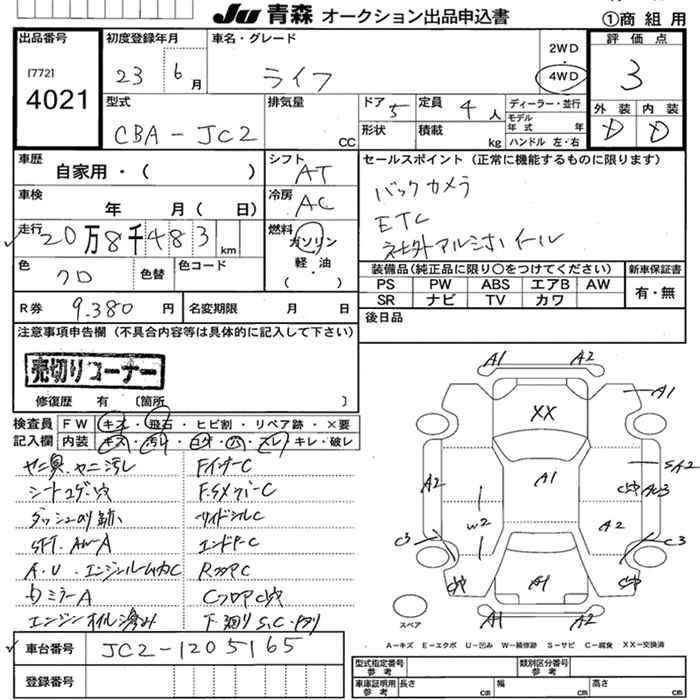 JU 青森 オークション出品申込書
①商 組 用
出品番号
[772]
4021
初度登録年月
23 6 月
車名・グレード
ライフ
2WD
4WD
評 価 点
3
外 装 内 装
D D
型式
CBA-JC2
排気量
CC
ドア 5
形状
定員 4 人
積載 kg
ディーラー・並行
モデル年式 年
ハンドル 左・右
車歴
自家用・( )
車検
年 月( 日)
走行
20万8千483 km
色
クロ
色替
色コード
シフト
AT
冷房
AC
燃料
ガソリン
軽・油
( )
セールスポイント(正常に機能するものに限ります)
バックカメラ
ETC
社外アルミホイール
装備品(純正品に限り○をつけてください)
PS PW ABS エアB AW
SR ナビ TV カワ
新車保証書
有・無
R券
9.380 円
名変期限 月 日
後日品
注意事項申告欄(不具合内容等は具体的に記入して下さい)
売切りコーナー
修復歴 有 〔箇所 〕
検査員記入欄
FW キズ・飛石・ヒビ割・リペア跡・×要
内装 キズ・汚レ・コゲ・穴・スレ・キレ・破レ
ヤニ臭.ヤニ汚レ
シートコゲ・穴
ダッシュのり跡
エンジンオイル滲み
FインナーC
サイドシルC
エンドPC
A1 A2
A1
XX
A1
A2
SA2
W2
A2
C3
C3
A1
A1 A2
スペア
A-キズ E-エクボ U-凹み W-補修跡 S-サビ C-腐食 XX-交換済
車台番号
JC2-1205165
登録番号
型式指定番号
参考
類別区分番号
参考
車庫証明用
参考
長さ cm
幅 cm
高さ cm